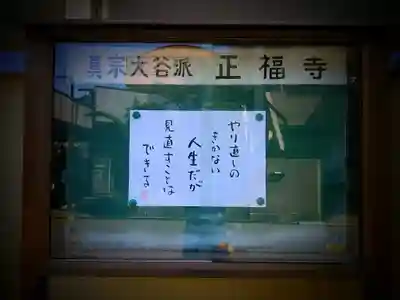 真宗大谷派 正福寺
やり直しの
きかない
人生だが
見直すことは
できる